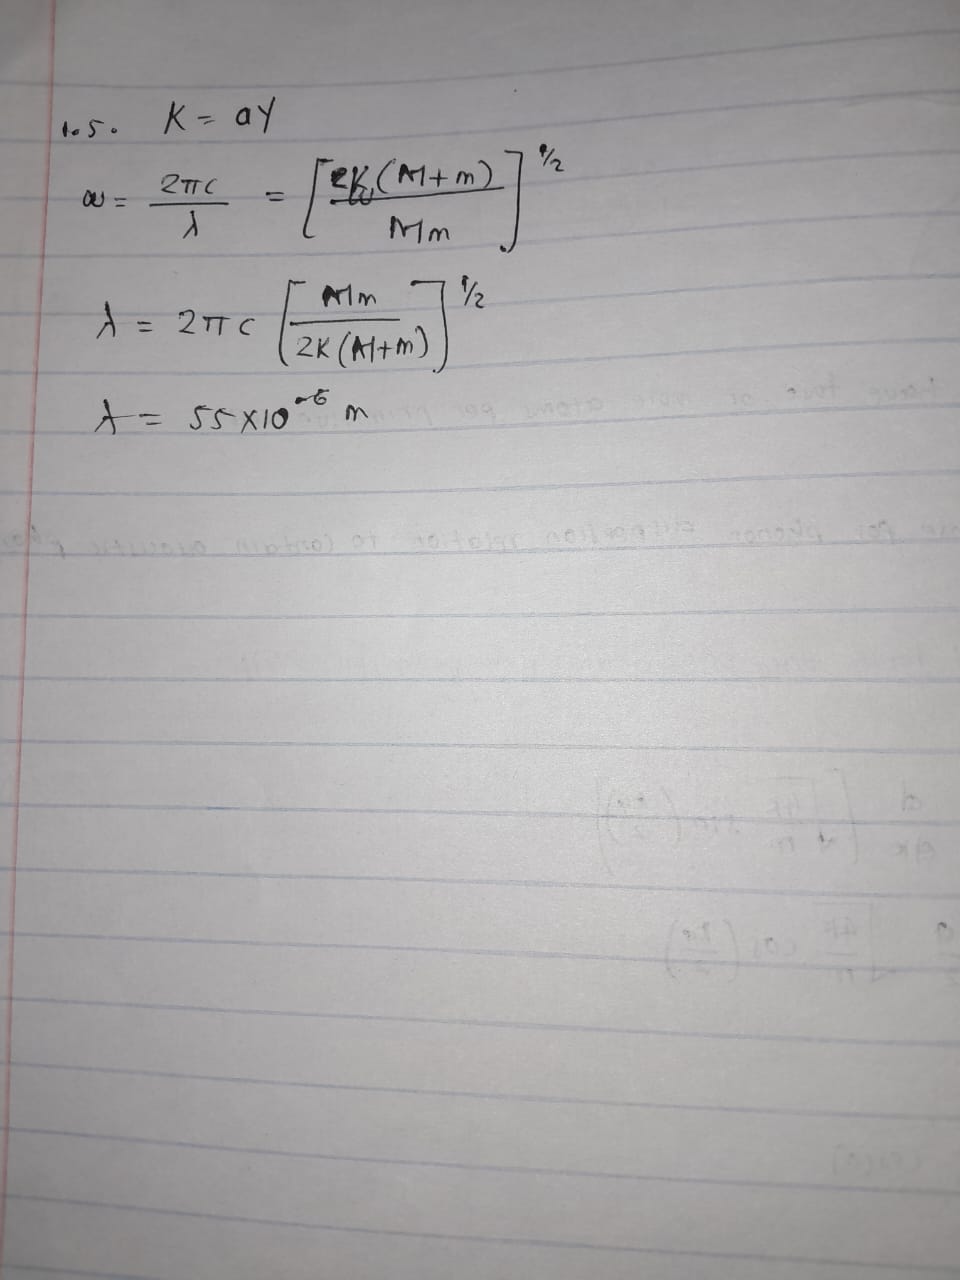 1.5. K = aY
ω = 2πc/λ = [2K(M+m)/Mm]^1/2
λ = 2πc [Mm/2K(M+m)]^1/2
λ = 55×10^-6 m